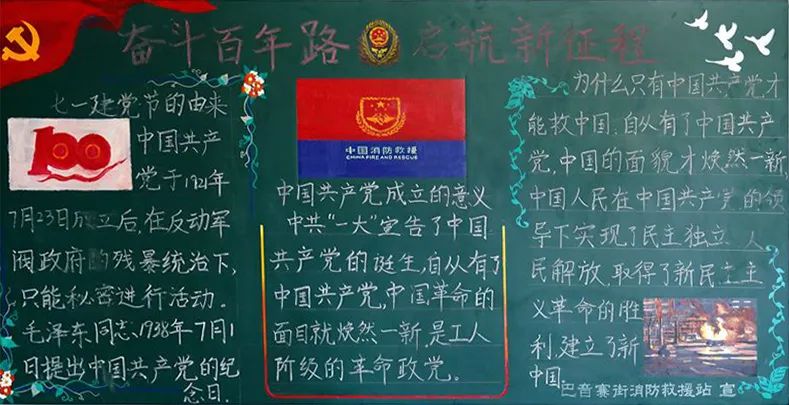 奋斗百年路 启航新征程
七一建党节的由来
100
中国共产
党于1921年
7月23日成立后,在反动军
阀政府的残暴统治下,
只能秘密进行活动.
毛泽东同志,1938年7月1
日提出中国共产党的纪
念日.
中国消防救援
CHINA FIRE AND RESCUE
中国共产党成立的意义
中共"一大"宣告了中国
共产党的诞生,自从有了
中国共产党,中国革命的
面目就焕然一新,是工人
阶级的革命政党。
为什么只有中国共产党才
能救中国:自从有了中国共产
党,中国的面貌才焕然一新,
中国人民在中国共产党的领
导下实现了民主独立,人
民解放,取得了新民主主
义革命的胜
利,建立了新
中国
巴音赛街消防救援站 宣